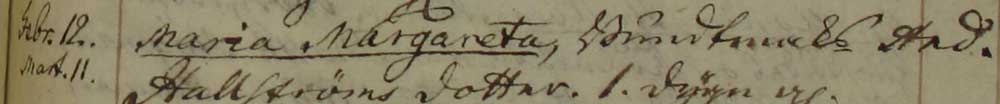 Febr. 12. Maria Margareta, Bundtmaks And.
Mart. 11. Hallströms dotter. 1. dygn gl.